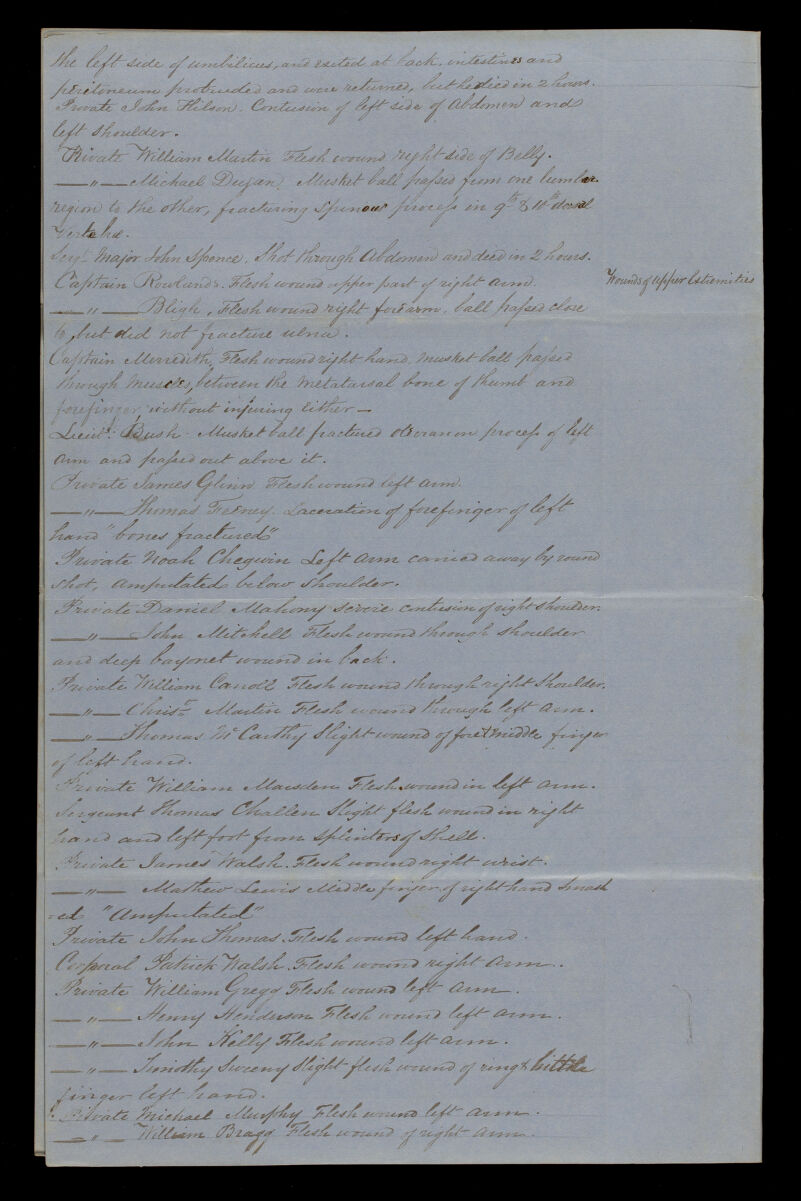 the left side of umbilicus, and exited at back, intestines and
peritoneum protruded and were returned, but he died in 2 hours.
Private John Hilson. Contusion of left side of Abdomen and
left shoulder.
Private William Martin Flesh wound right side of Belly.
— " — Michael Dugan, Musket ball passed from one lumbar
region to the other, fracturing spinous process in 9th & 10th dorsal
Vertebræ.
Sergt Major John Spence. Shot through Abdomen and died in 2 hours.
Captain Rowlands. Flesh wound upper part of right arm.
Wounds of Upper Extremities
— " — Bligh, Flesh wound right forearm, ball passed close
to, but did not fracture ulna.
Captain Merredith, Flesh wound right hand, musket ball passed
through muscles, between the metatarsal bone of thumb and
forefinger, without injuring either —
Lieut. Bush. Musket ball fractured olecranon process of left
arm and passed out above it.
Private James Glinn Flesh wound left arm.
— " — Thomas Feeney. Laceration of forefinger of left
hand "bones fractured"
Private Noah Chegwin Left arm carried away by round
shot, amputated below shoulder.
Private Daniel Mahony severe contusion of right shoulder.
— " — John Mitchell Flesh wound through shoulder
and deep bayonet wound in back.
Private William Caroll Flesh wound through right shoulder.
— " — Christr Martin Flesh wound through left arm.
— " — Thomas Mc Carthy Slight wound of fore & middle finger
of left hand.
Private William Marsden Flesh wound in left arm.
Sergeant Thomas Challen Slight flesh wound in right
hand and left foot from splinters of shell.
Private James Walsh. Flesh wound right wrist.
— " — Mathew Lewis Middle finger of right hand smash
-ed "Amputated"
Private John Thomas. Flesh wound left hand.
Corporal Patrick Walsh. Flesh wound right arm.
Private William Gregg Flesh wound left arm.
— " — Henry Henderson Flesh wound left arm.
— " — John Kelly Flesh wound left arm.
— " — Timothy Sweeny Slight flesh wound of ring & little
finger left hand.
Private Michael Murphy Flesh wound left arm.
— " — William Bragg Flesh wound of right arm.